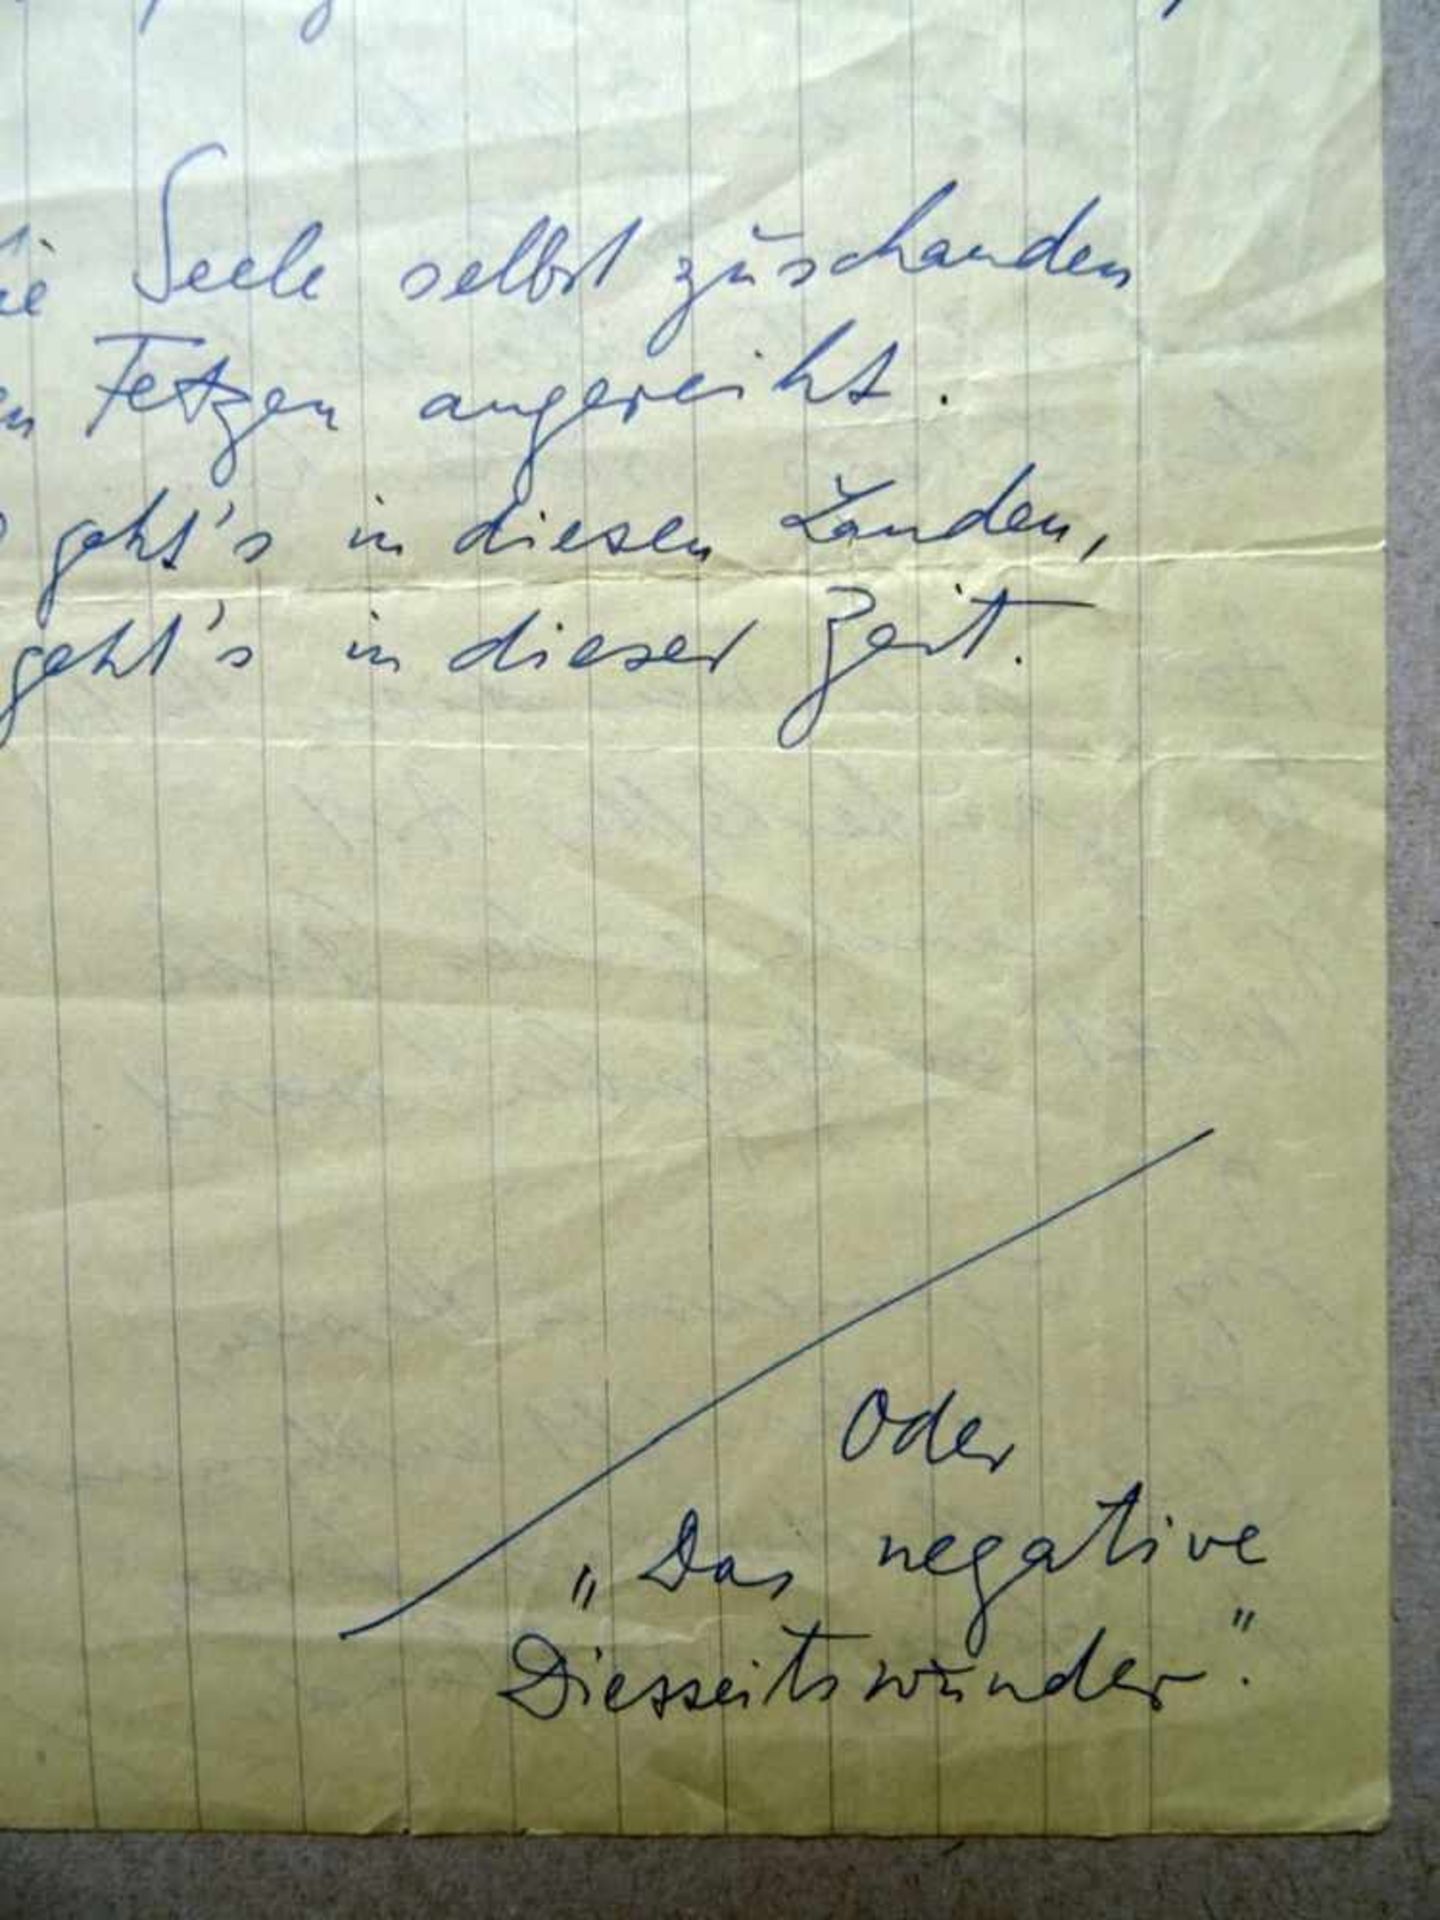 Seele selbst zuschanden
Fetzen angereiht.
geht's in diesen Landen,
geht's in dieser Zeit.
Oder
„Das negative
Diesseitswunder".